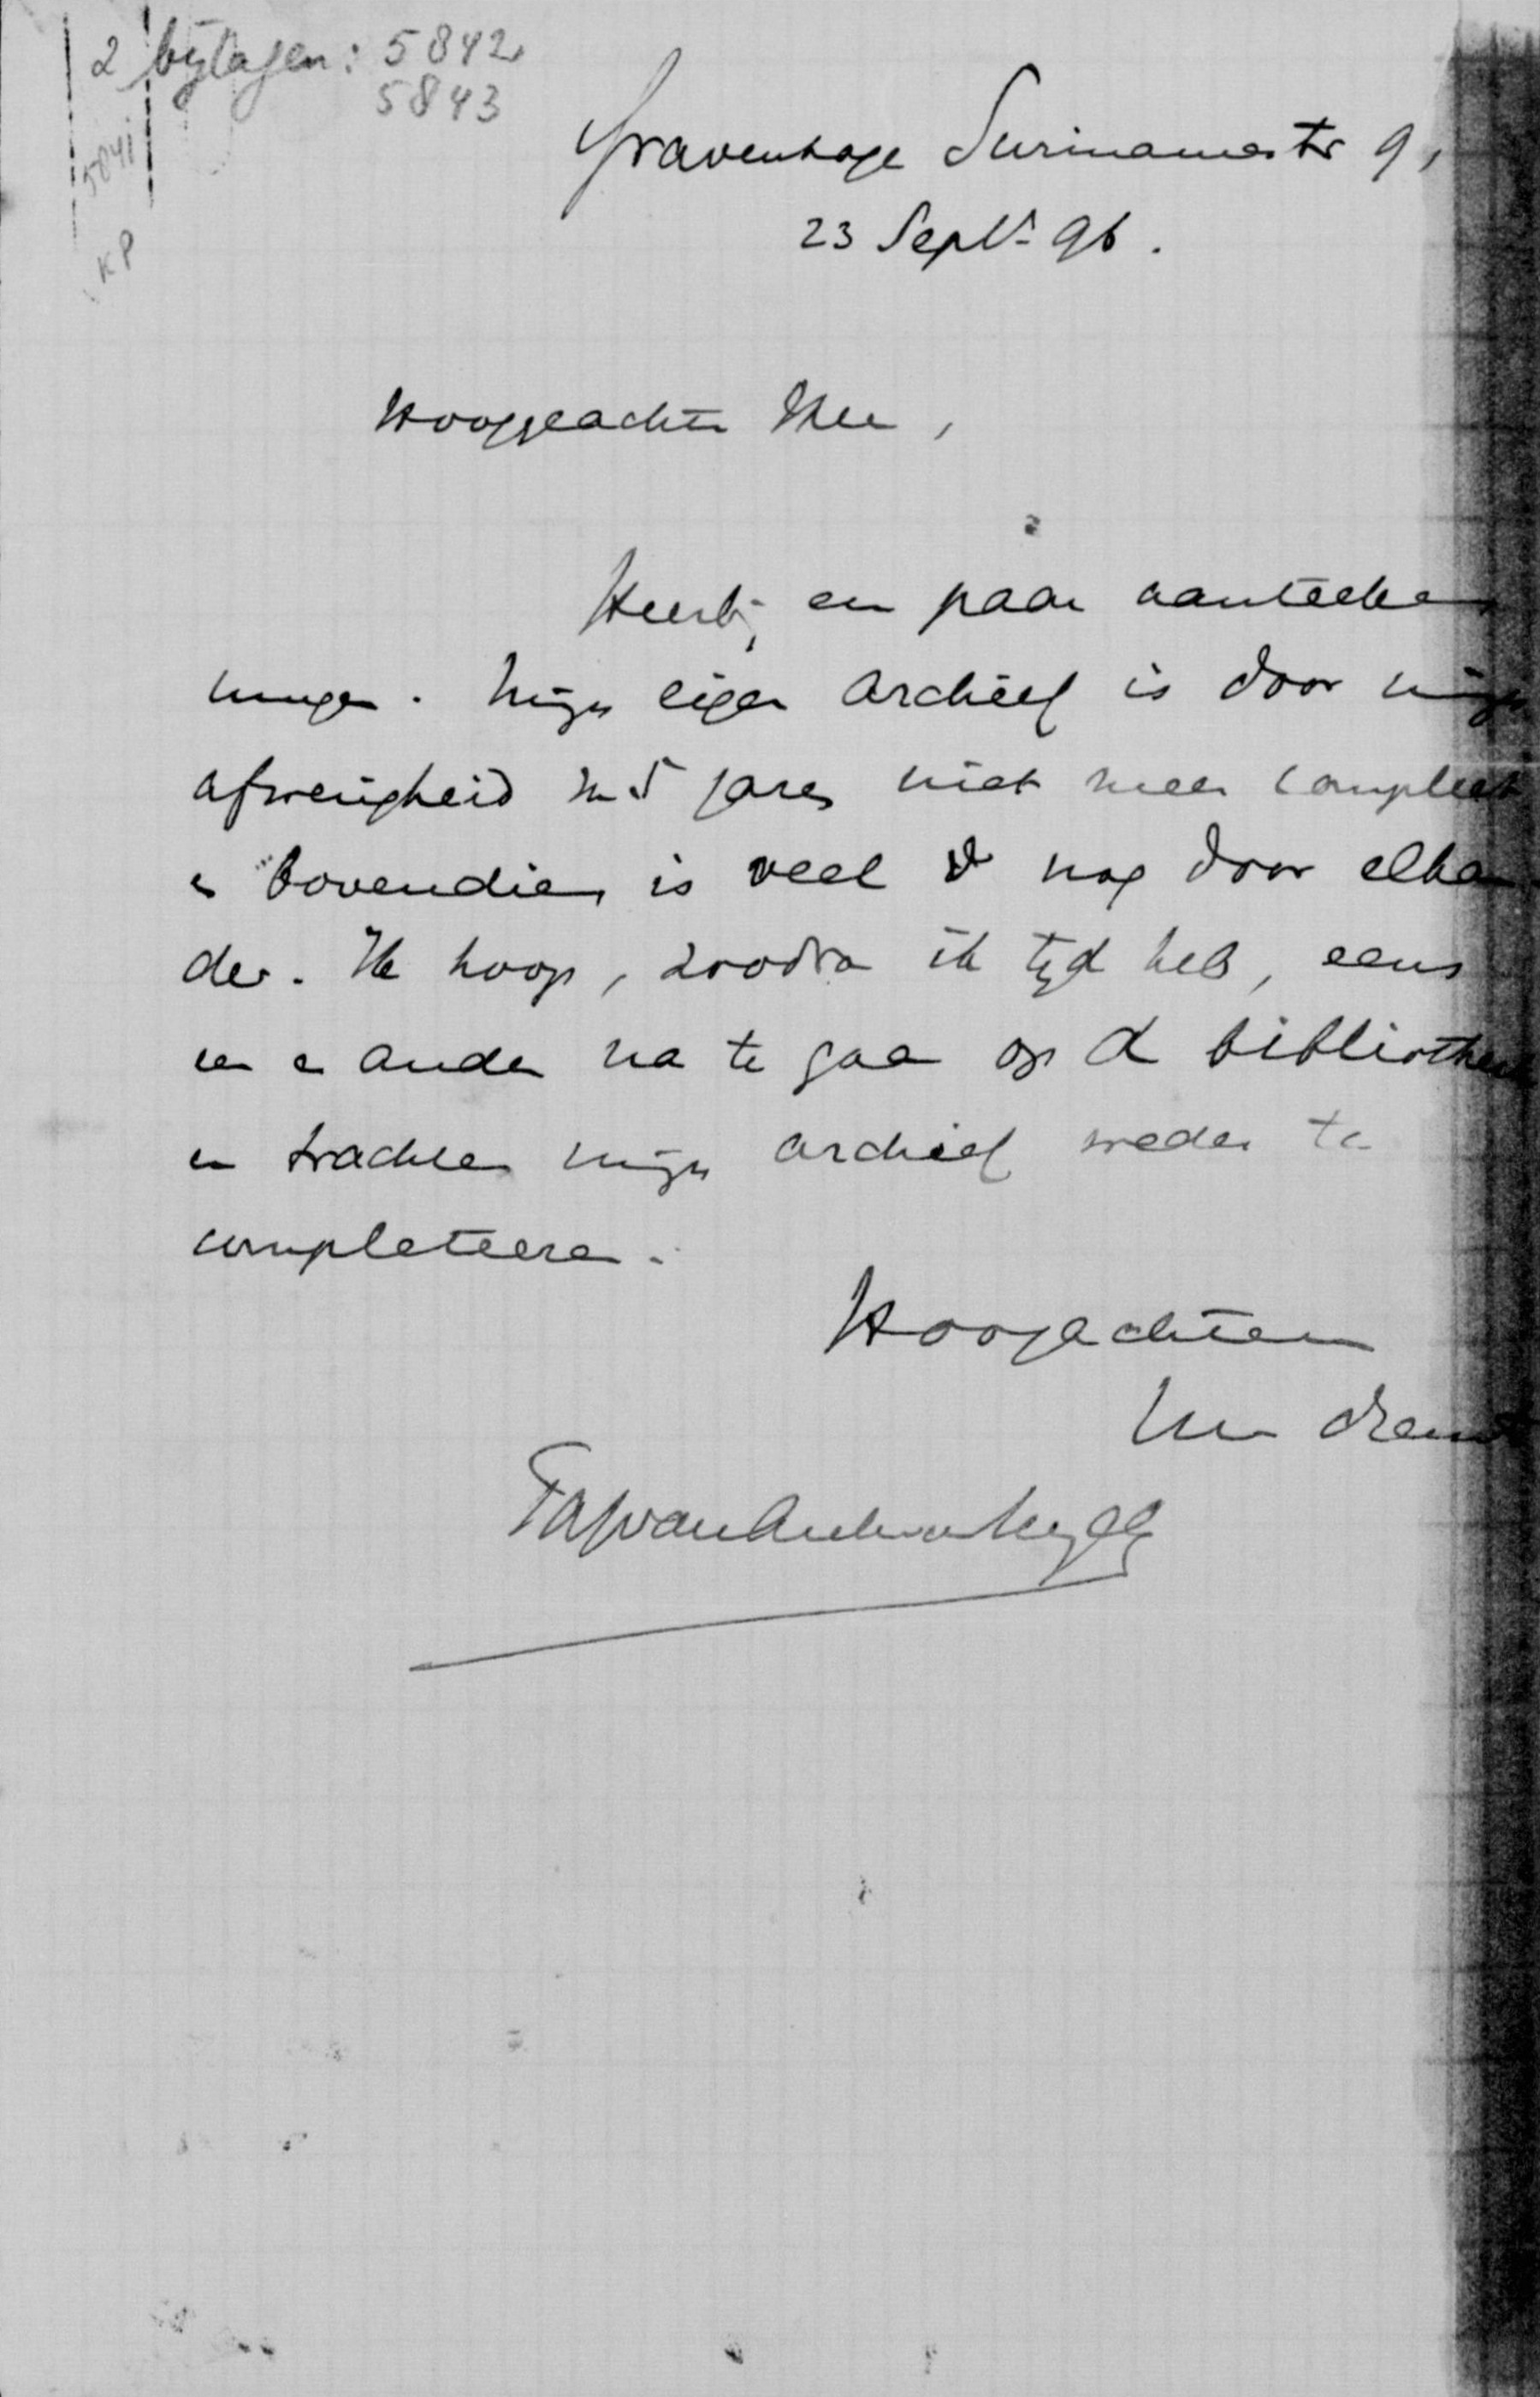 2 bijlagen: 5842
5843
5841
KP
Gravenhage Surinamestr 9,
23 Sept. 96.
Hooggeachte Heer,
Hierbij een paar aanteeke
ningen. Mijn eigen archief is door mijn
afwezigheid in d jaren niet meer compleet
en bovendien is veel nog door elkan
der. Ik hoop, zoodra ik tijd heb, eens
een en ander na te gaan op d bibliotheek
en trachten mijn archief weder te
completeeren.
Hoogachtend
Uw dienst